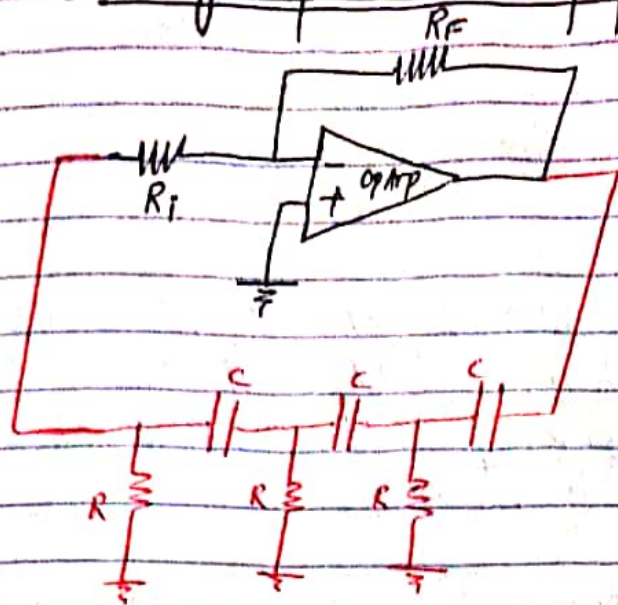 RF
-
Ri
+ OpAmp
C C C
R R R